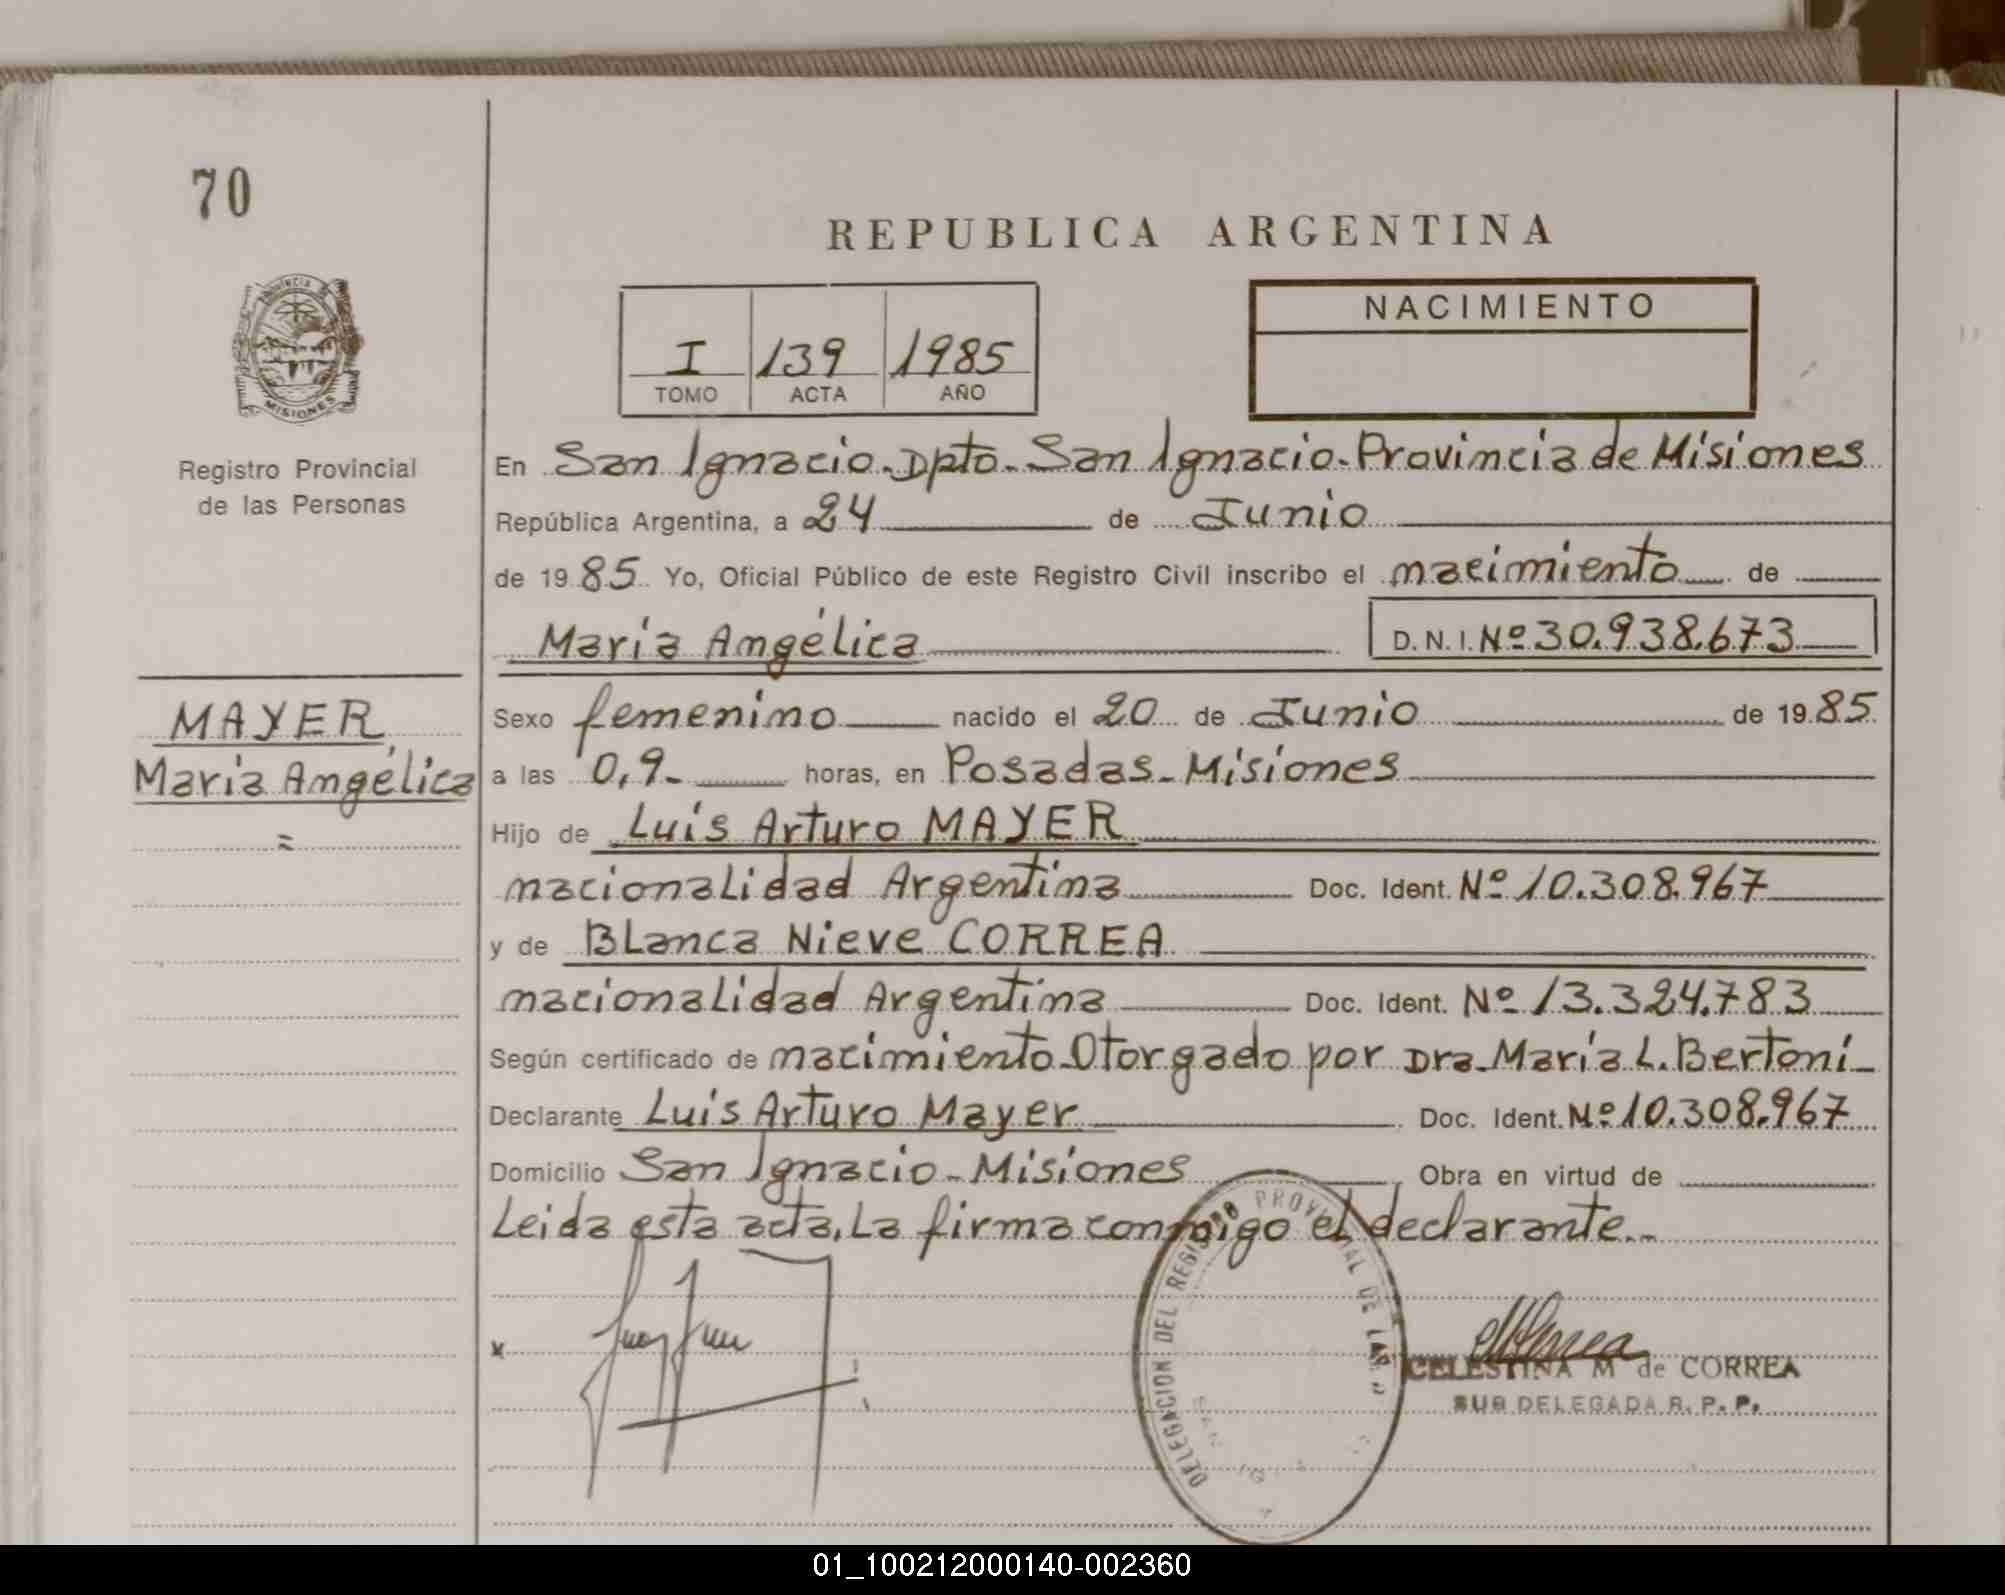 70
REPUBLICA ARGENTINA
Provincia de
MISIONES
Registro Provincial
de las Personas
I 139 1985
TOMO ACTA AÑO
NACIMIENTO
En San Ignacio - Dpto - San Ignacio - Provincia de Misiones
República Argentina, a 24 de Junio
de 1985 Yo, Oficial Público de este Registro Civil inscribo el nacimiento de
María Angélica D.N.I. Nº 30.938.673
MAYER
María Angélica
=
Sexo femenino nacido el 20 de Junio de 1985
a las 0,9- horas, en Posadas - Misiones
Hijo de Luis Arturo MAYER
nacionalidad Argentina Doc. Ident. Nº 10.308.967
y de Blanca Nieve CORREA
nacionalidad Argentina Doc. Ident. Nº 13.324.783
Según certificado de nacimiento Otorgado por Dra. María L. Bertoni -
Declarante Luis Arturo Mayer Doc. Ident. Nº 10.308.967
Domicilio San Ignacio - Misiones Obra en virtud de
Leida esta acta, La firma conmigo el declarante. -
x
DELEGACION DEL REGISTRO PROVINCIAL DE LAS P
CELESTINA M de CORREA
SUB DELEGADA R. P. P.
01_100212000140-002360